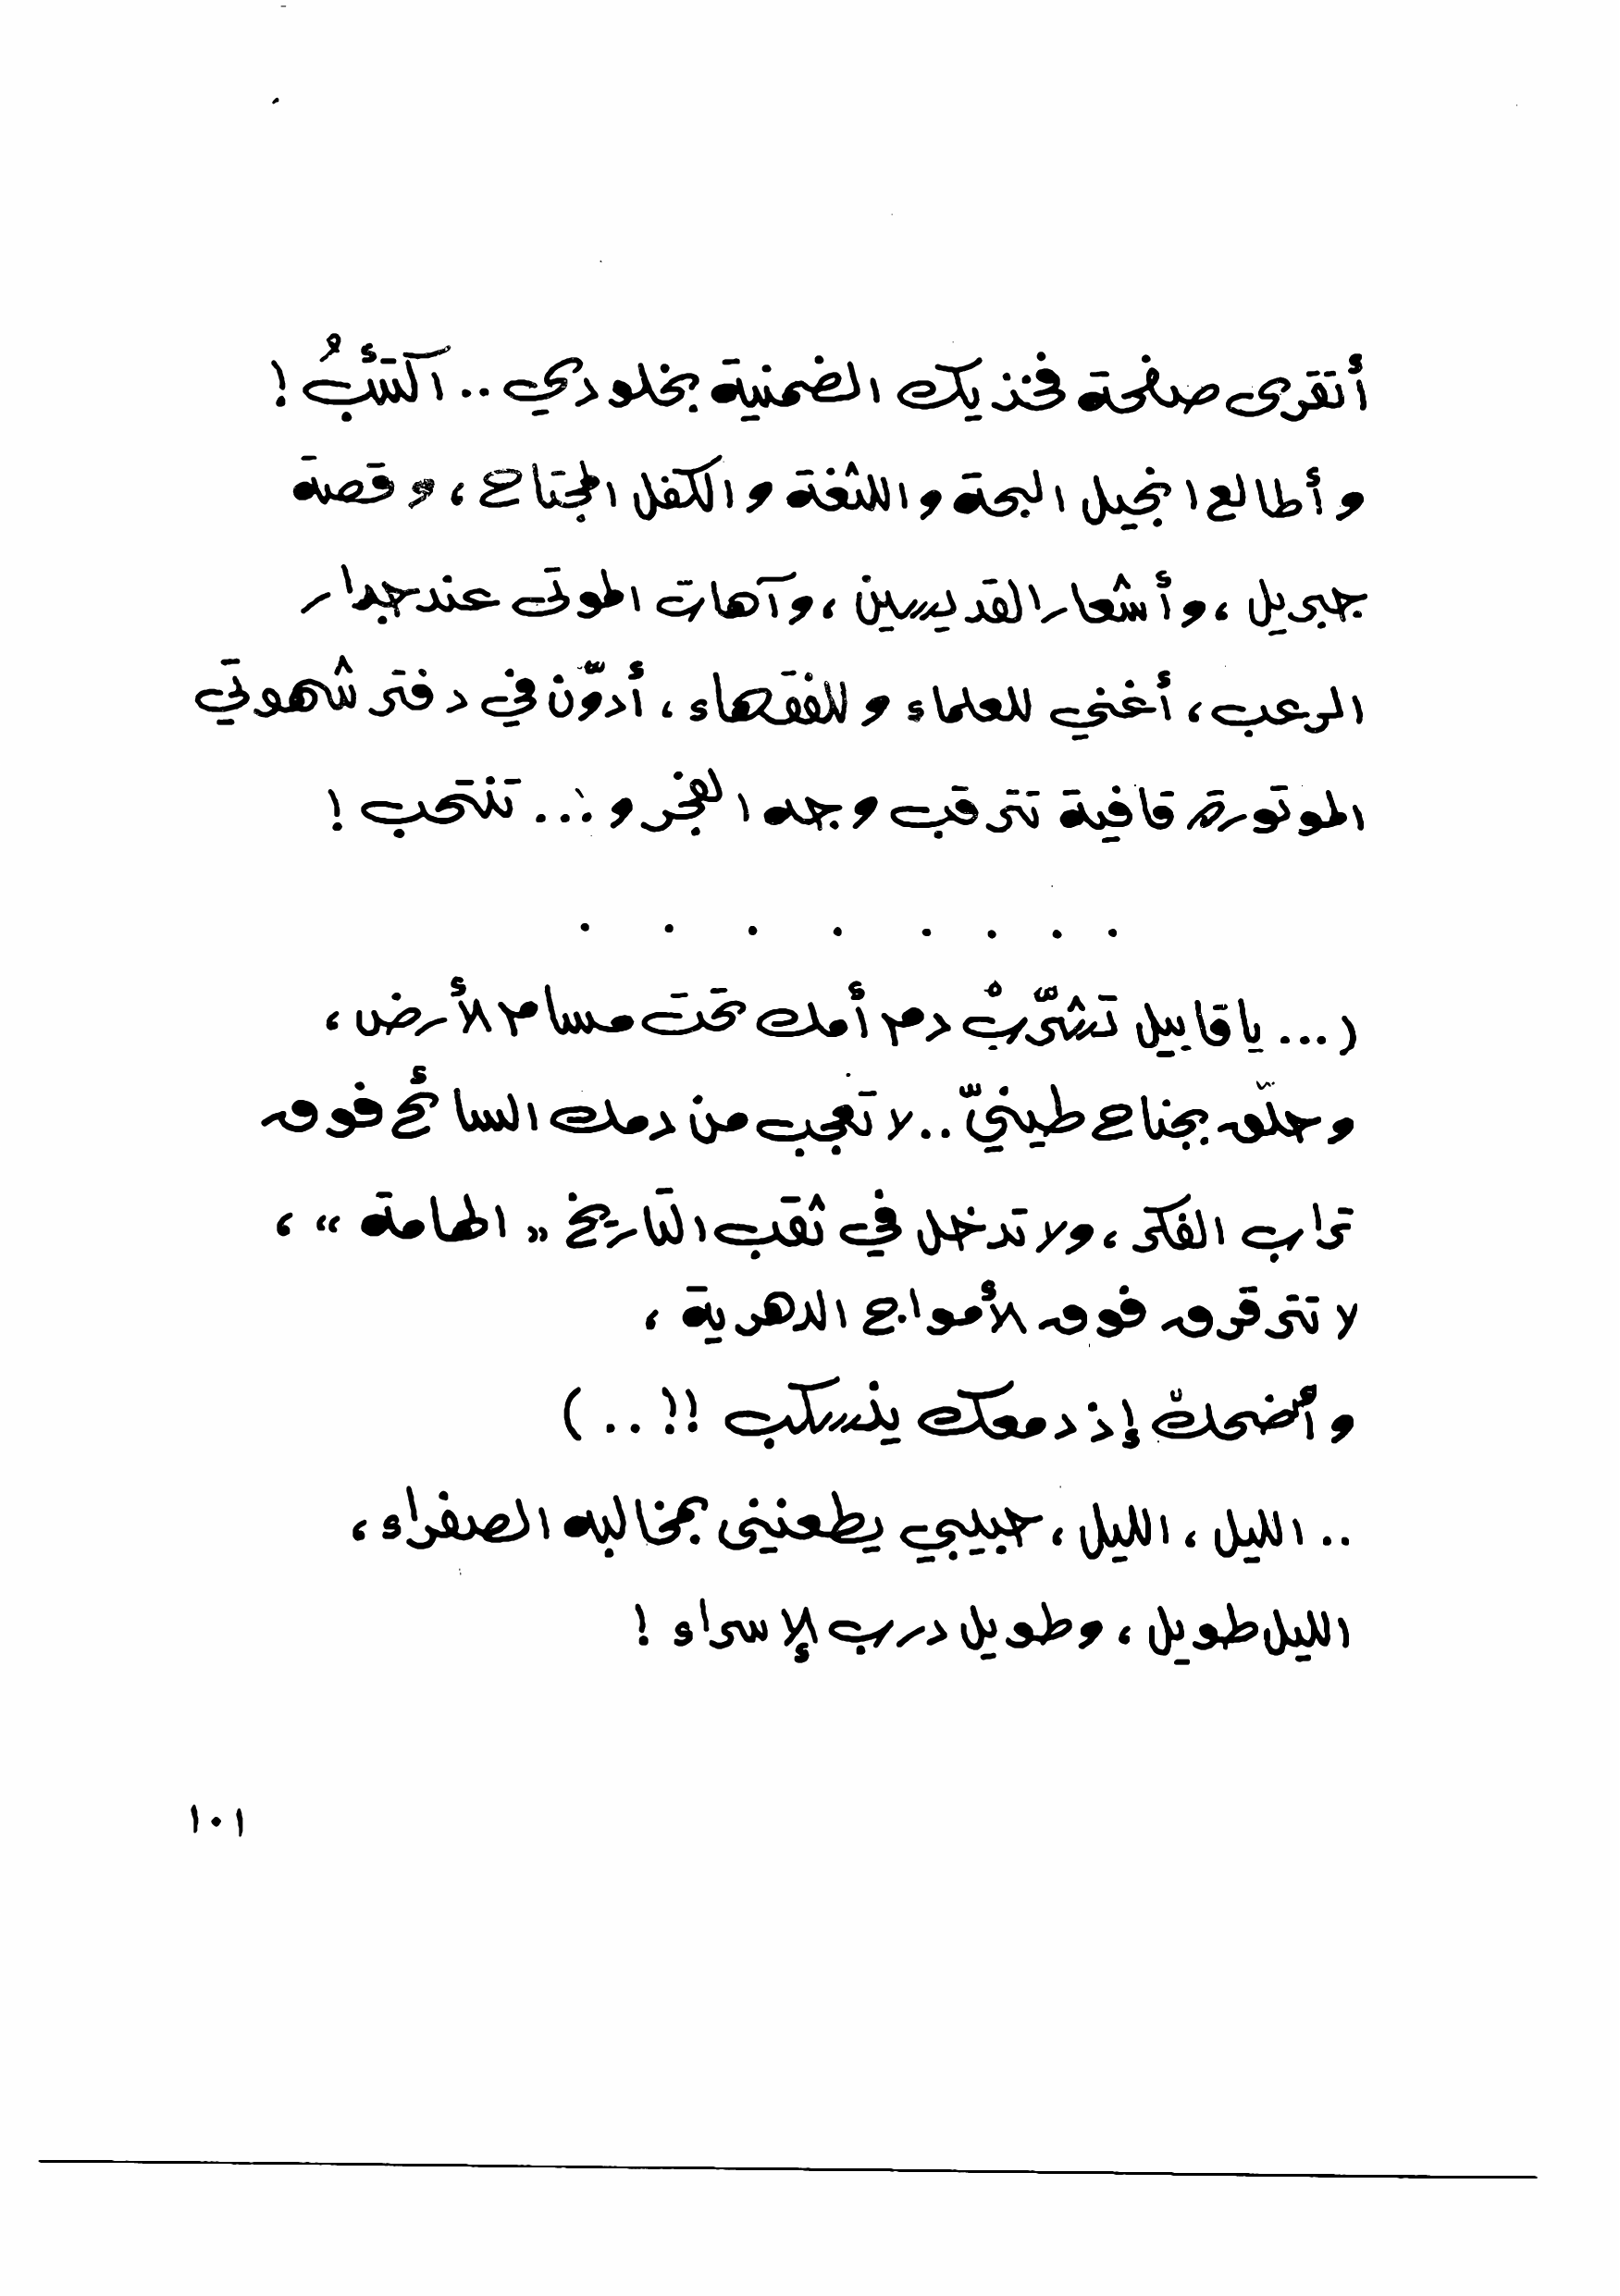 أتقرى صفحة فخذيك الضمنية بخلودي .. اكتئبُ !
وأطالع انجيل البحة واللثغة والكفل المجتاح ، وقصة
جبريل ، وأشعار القديسين ، وآهات الموتى عند جدار
الرعب ، أغني للعلماء وللفقهاء ، أدوّن في دفتر شهوتي
الموتورة قافية تترقب وجه الفجر و ... تنتحب !
. . . . . . . .
( ... يا قابيل تشرّبْ دم أمك تحت مسام الأرض ،
وحلّق بجناح طينيّ .. لا تعجب من دمك السائح فوق
تراب الفكر ، ولا تدخل في ثقب التاريخ « الهامة » ،
لا تترقرق فوق الأمواج الدهرية ،
وأضحك إذ دمعك ينسكب !! .. )
.. الليل ، الليل ، حبيبي يطعنني بمخالبه الصفراء ،
الليل طويل ، وطويل درب الإسراء !
١٠١